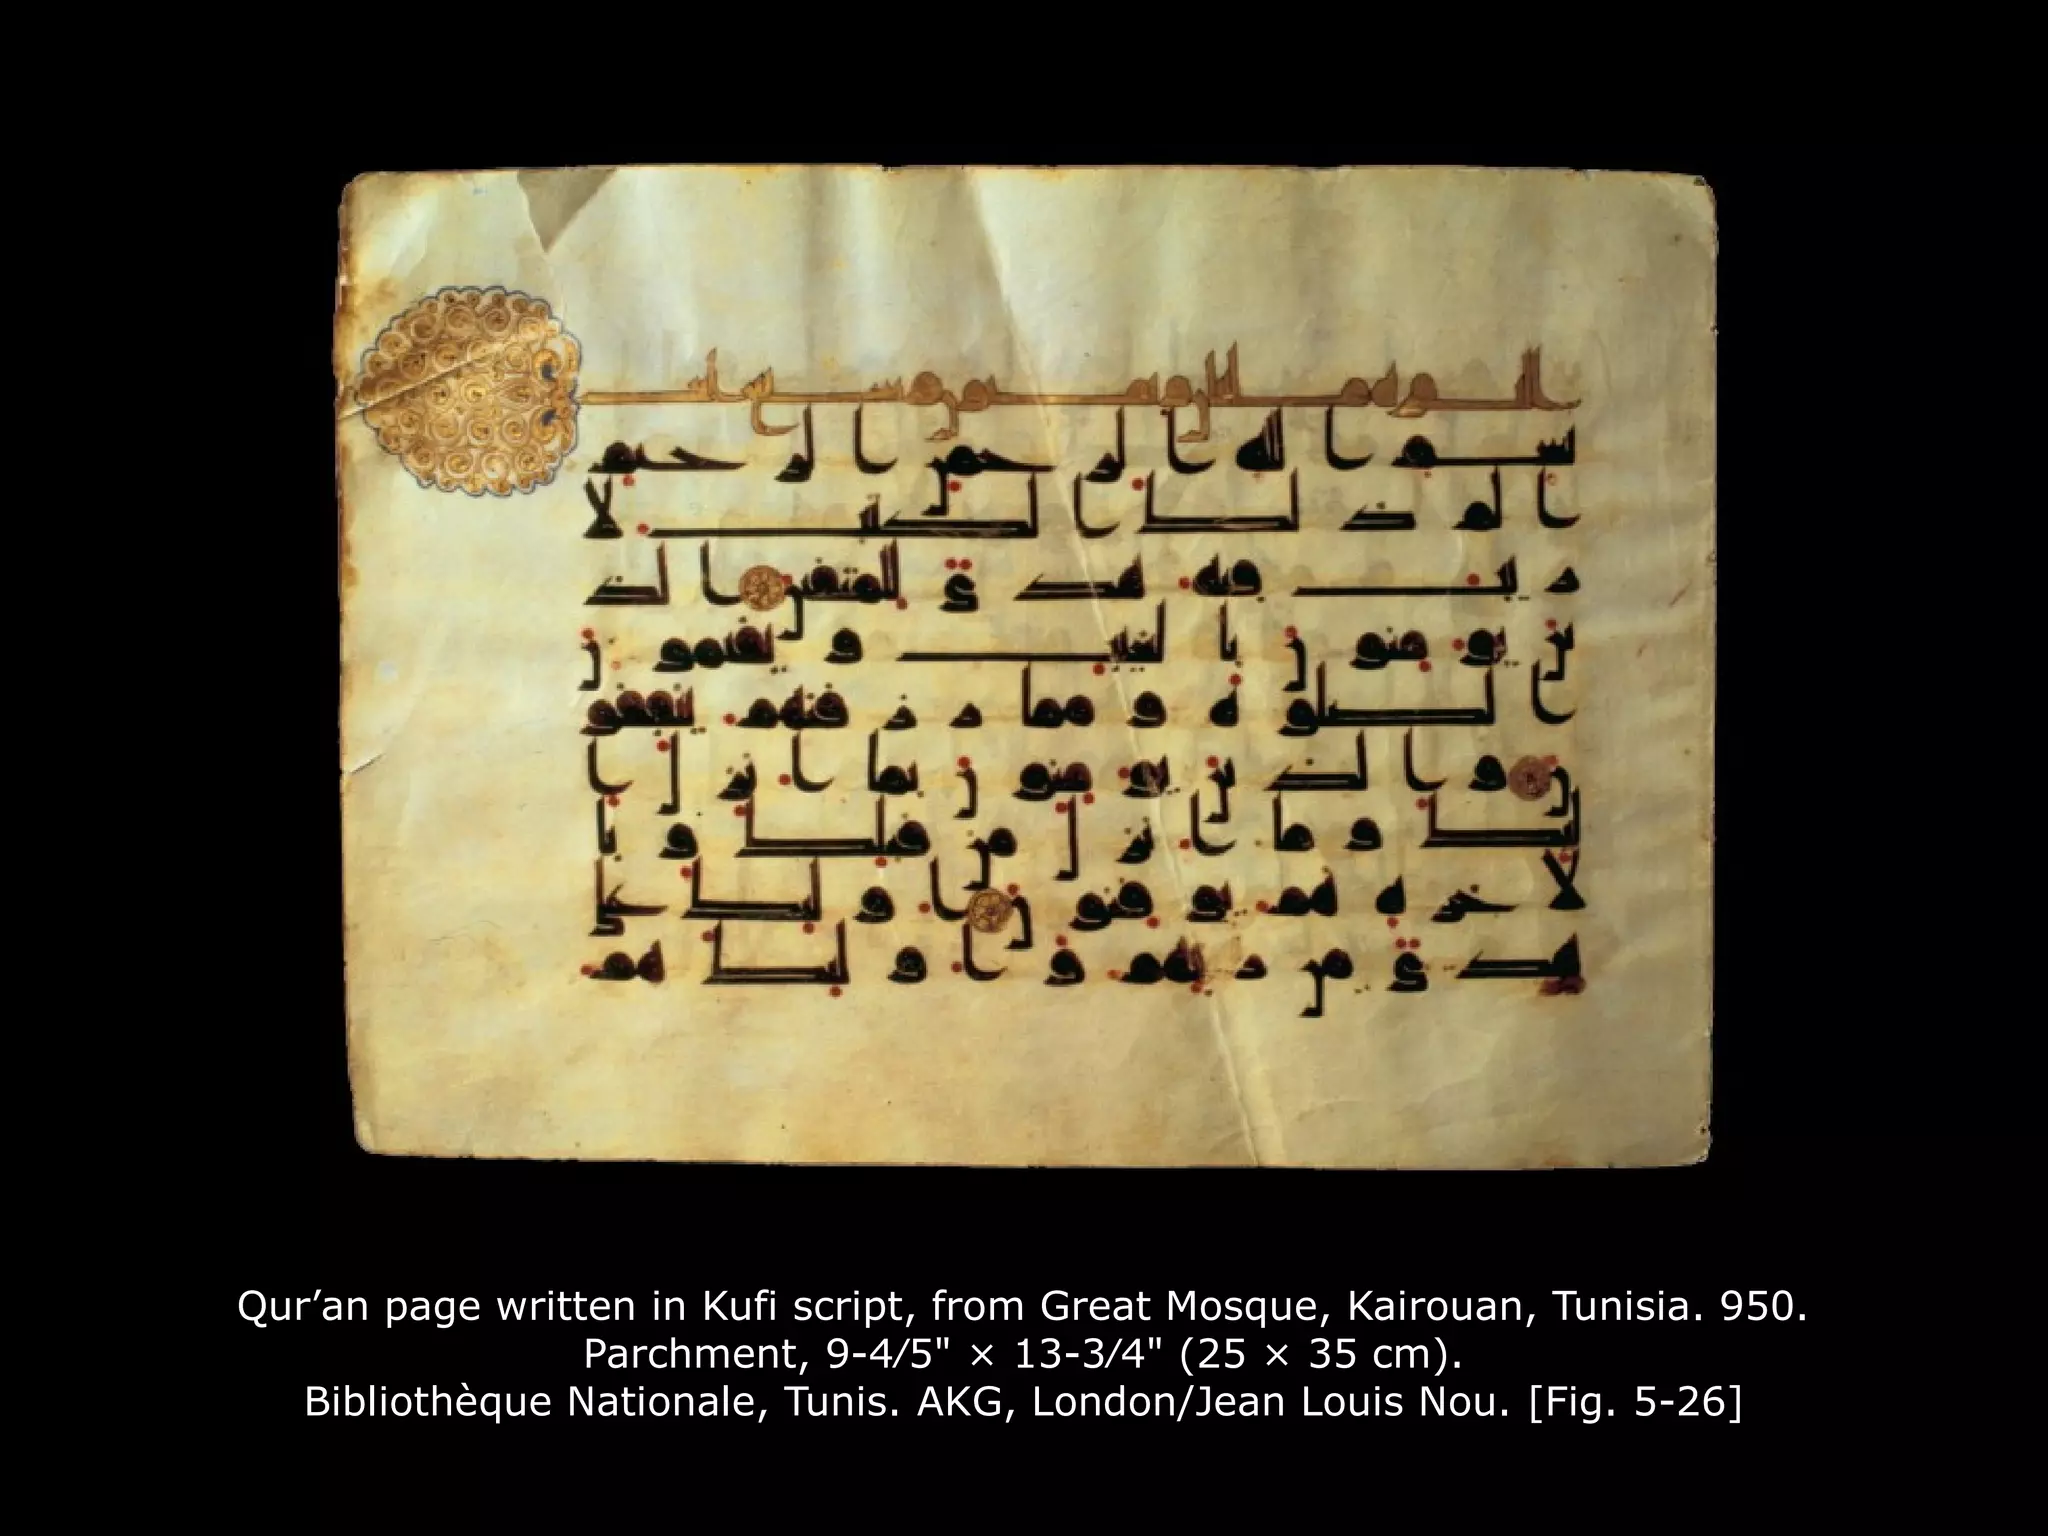 بسم الله الرحمن الرحيم
الم ذلك الكتب لا
ريب فيه هدى للمتقين الذ
ين يومنون بالغيب ويقيمون
الصلوة ومما رزقنهم ينفقو
ن والذين يومنون بما انزل ا
ليك وما انزل من قبلك وبا
لاخرة هم يوقنون اوليك على
هدى من ربهم واوليك هم
Qur’an page written in Kufi script, from Great Mosque, Kairouan, Tunisia. 950.
Parchment, 9-4/5" × 13-3/4" (25 × 35 cm).
Bibliothèque Nationale, Tunis. AKG, London/Jean Louis Nou. [Fig. 5-26]